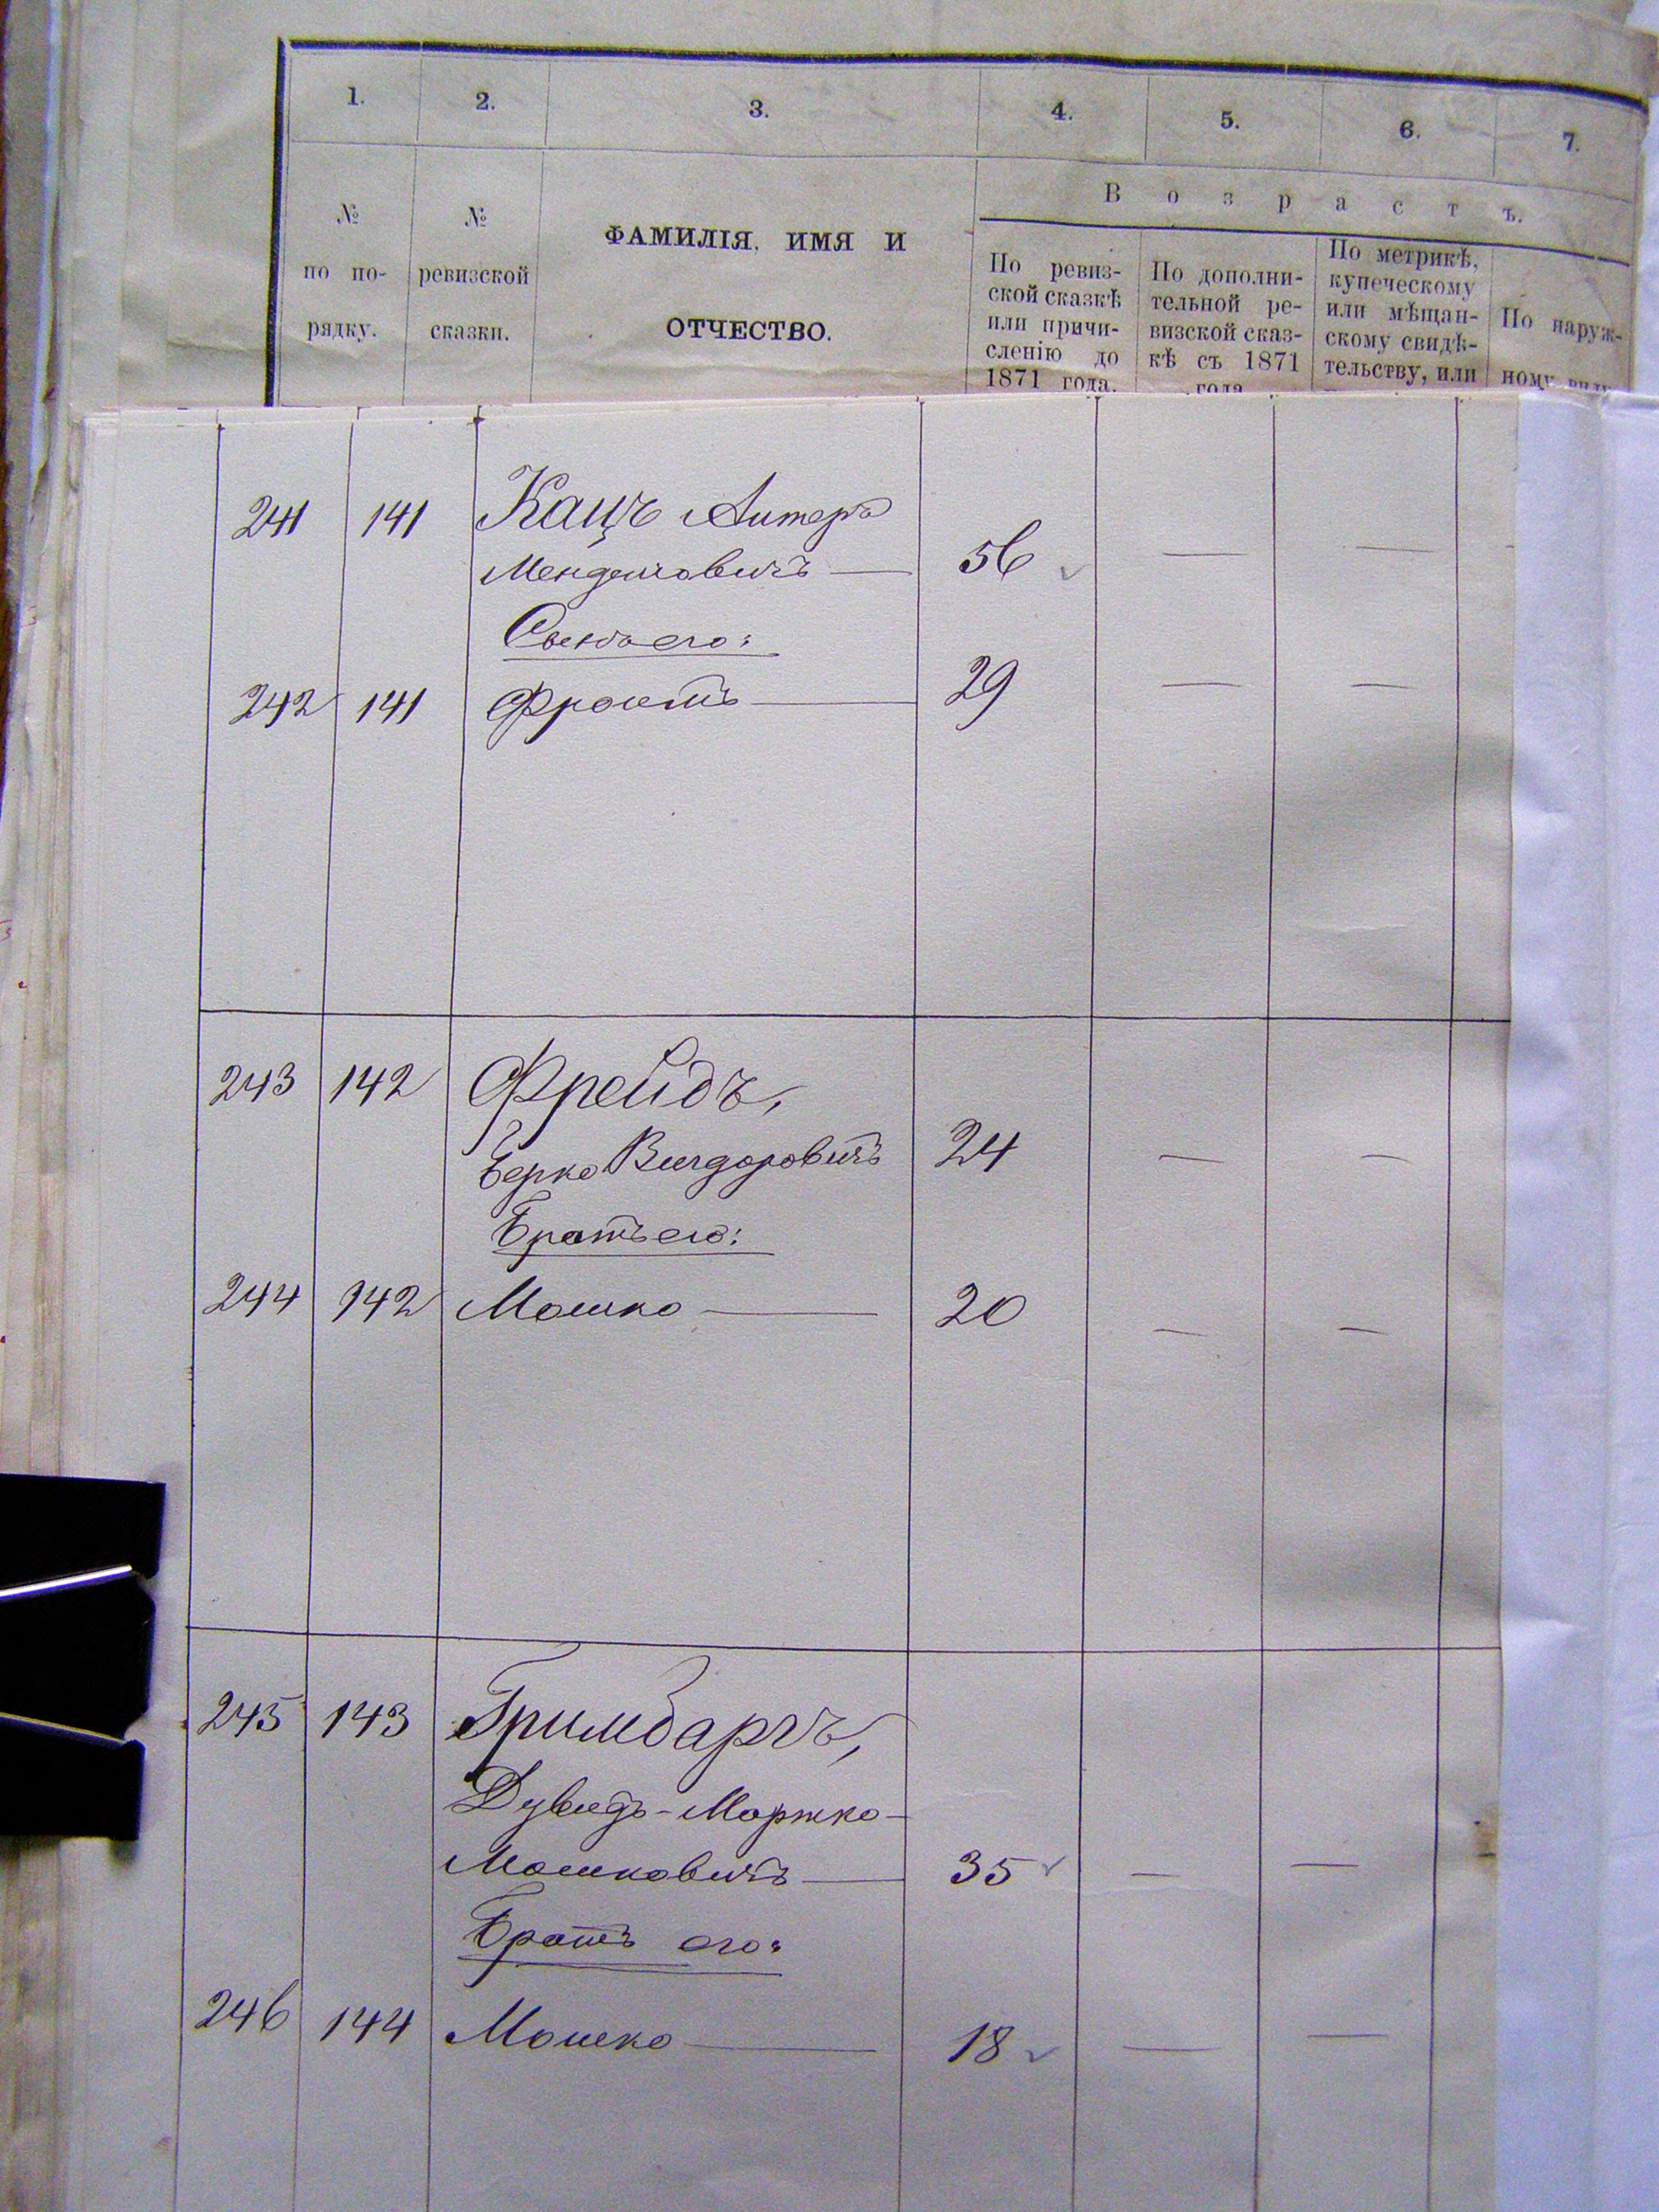 1. 2. 3. 4. 5. 6. 7.
В о з р а с т ъ.
№
по по-
рядку.
№
ревизской
сказки.
ФАМИЛІЯ, ИМЯ И
ОТЧЕСТВО.
По ревиз-
ской сказкѣ
или причи-
сленію до
1871 года.
По дополни-
тельной ре-
визской сказ-
кѣ съ 1871
года
По метрикѣ,
купеческому
или мѣщан-
скому свидѣ-
тельству, или
По наруж-
ному виду
241 141 Кацъ Алтеръ
Менделовичъ — 56 — —
Сынъ его:
242 141 Фроимъ — 29 — —
243 142 Фрейдъ,
Берко Вигдоровичъ 24 — —
Братъ его:
244 142 Мошко — 20 — —
245 143 Гримбаргъ,
Дувидъ-Моржко-
Мошковичъ — 35 — —
Братъ его:
246 144 Мошко — 18 — —